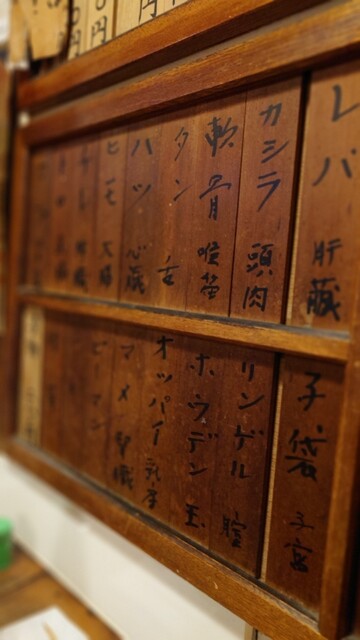 レバ 肝蔵
カシラ 頭肉
軟骨 喉笛
タン 舌
ハツ 心蔵
ヒモ 大腸
子袋 子宮
リンゲル 膣
ホウデン 玉
オッパイ 乳房
マメ 腎臓
ピーマン